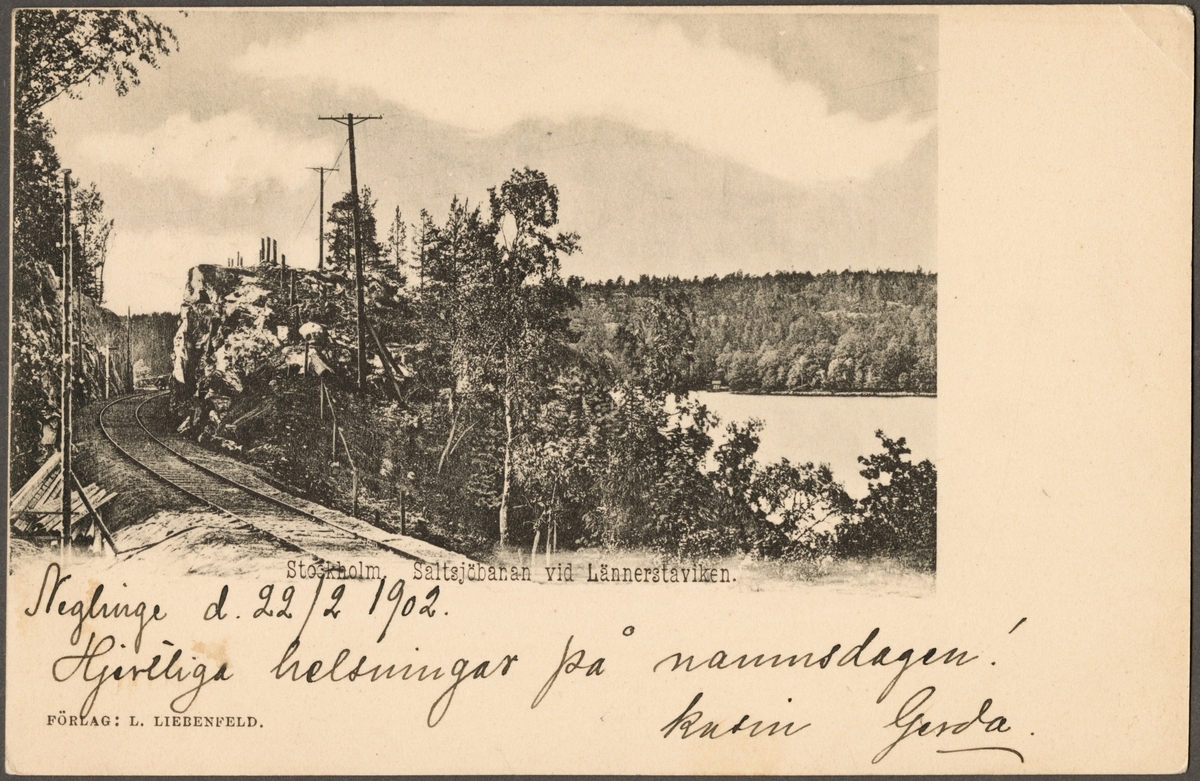 Stockholm. Saltsjöbanan vid Lännerstaviken.
Neglinge d. 22/2 1902.
Hjertliga helsningar på namnsdagen!
kusin Gerda.
FÖRLAG: L. LIEBENFELD.